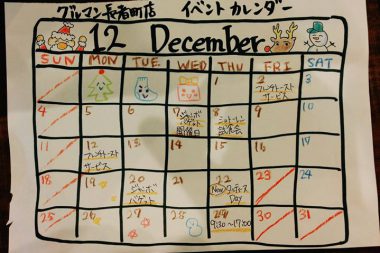 グルマン長者町店 イベントカレンダー
12 December
SUN MON TUE WED THU FRI SAT
1 2 3
フレンチトースト
サービス
4 5 6 7 8 9 10
ジャンボ
バゲット
開催日
シュトーレン
試食会
11 12 13 14 15 16 17
フレンチトースト
サービス
18 19 20 21 22 23 24
ジャンボ
バゲット
New
Day
25 26 27 28 29 30 31
9:30~17:00